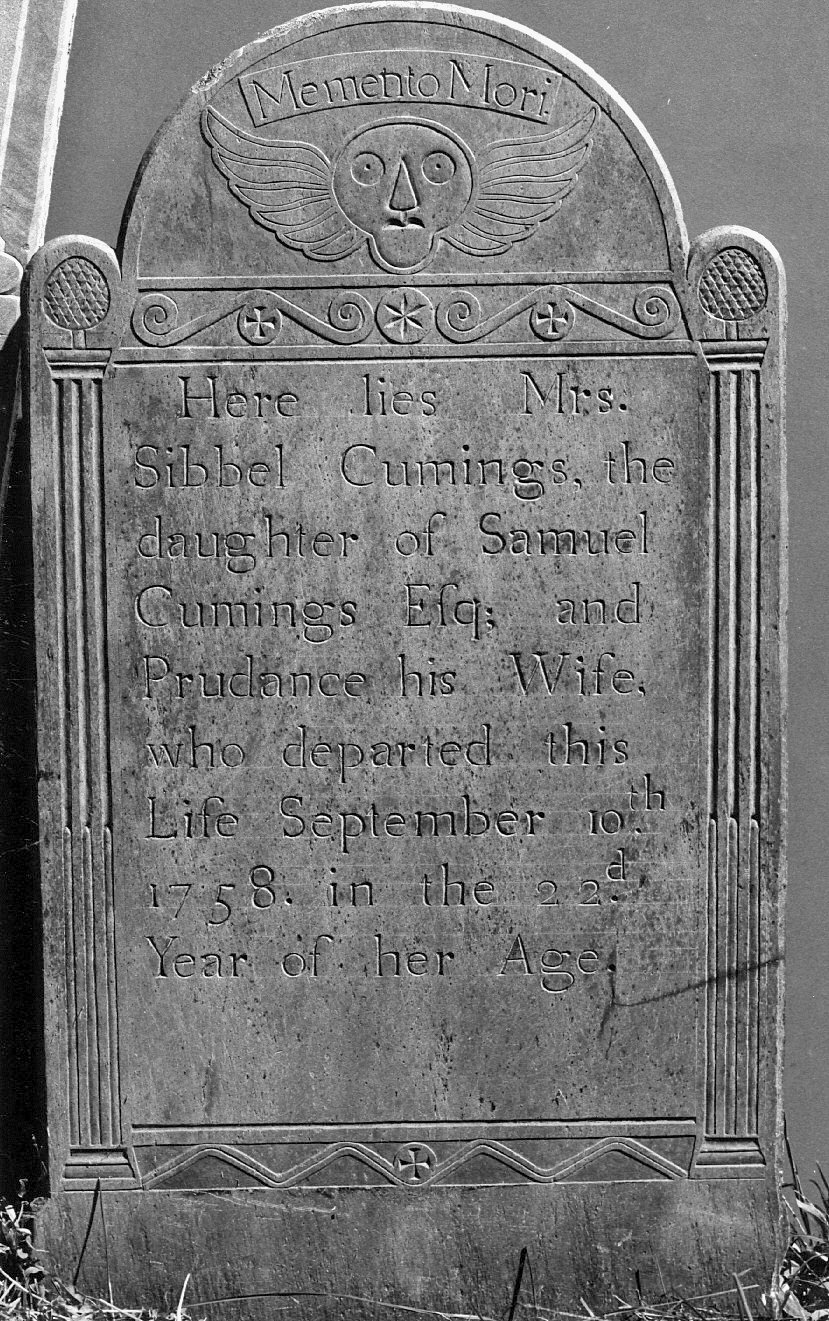 Memento Mori
Here lies Mrs.
Sibbel Cumings, the
daughter of Samuel
Cumings Eſq; and
Prudance his Wife,
who departed this
Life September 10.th
1758. in the 22.d
Year of her Age.